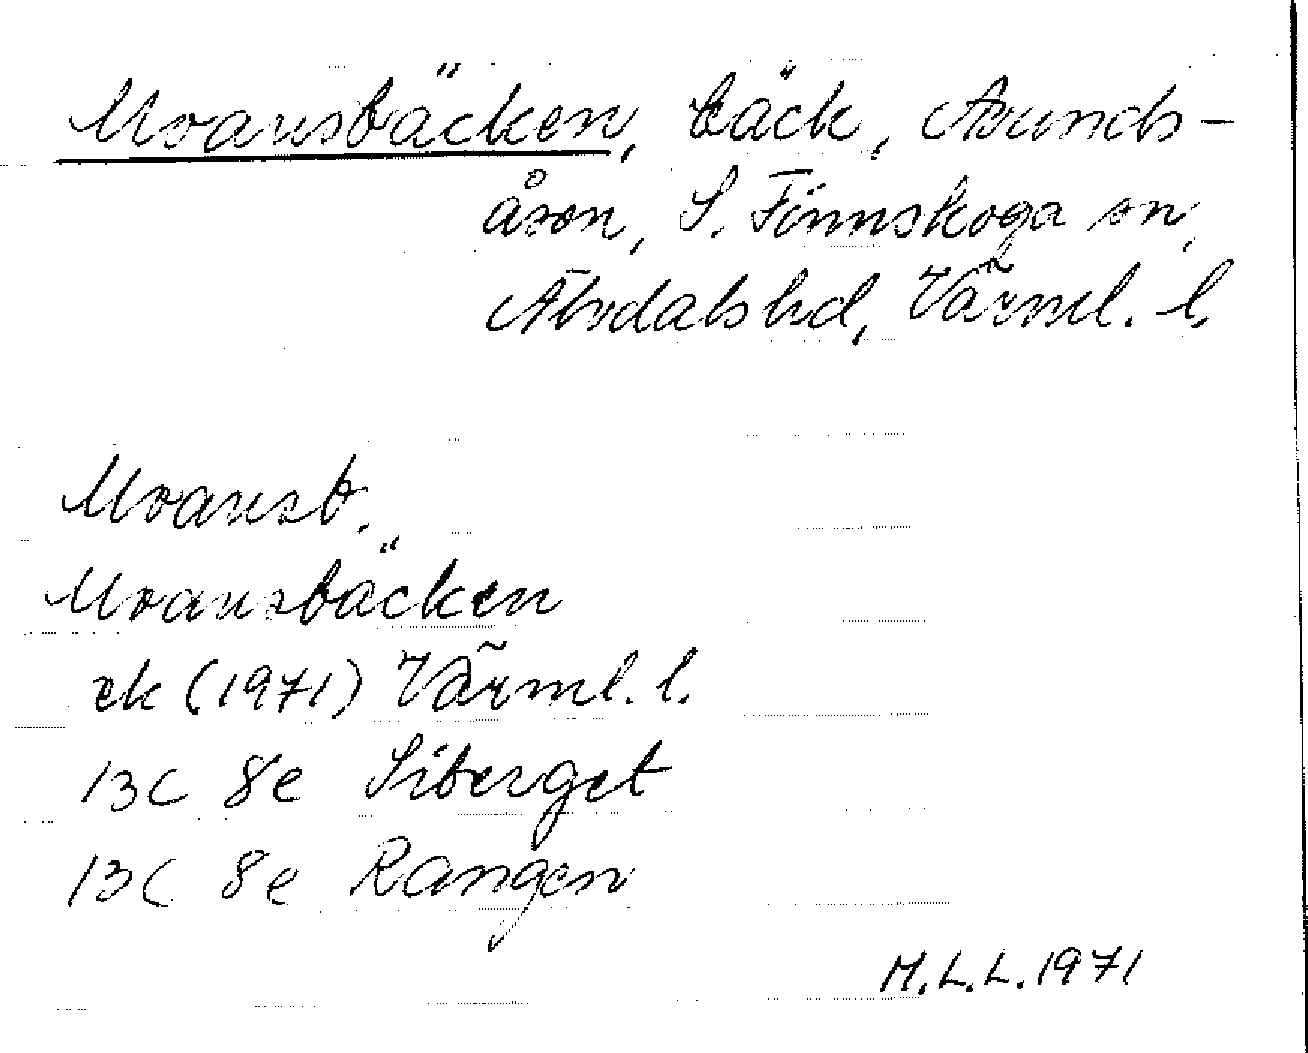 Mvansbäcken, bäck, Avunds-
åsen, S. Finnskoga sn,
Älvdals hd, Värml. l.
Mvansb.
Mvansbäcken
ek (1971) Värml. l.
13C 8e Siberget
13C 8e Rangen
M.L.L. 1971